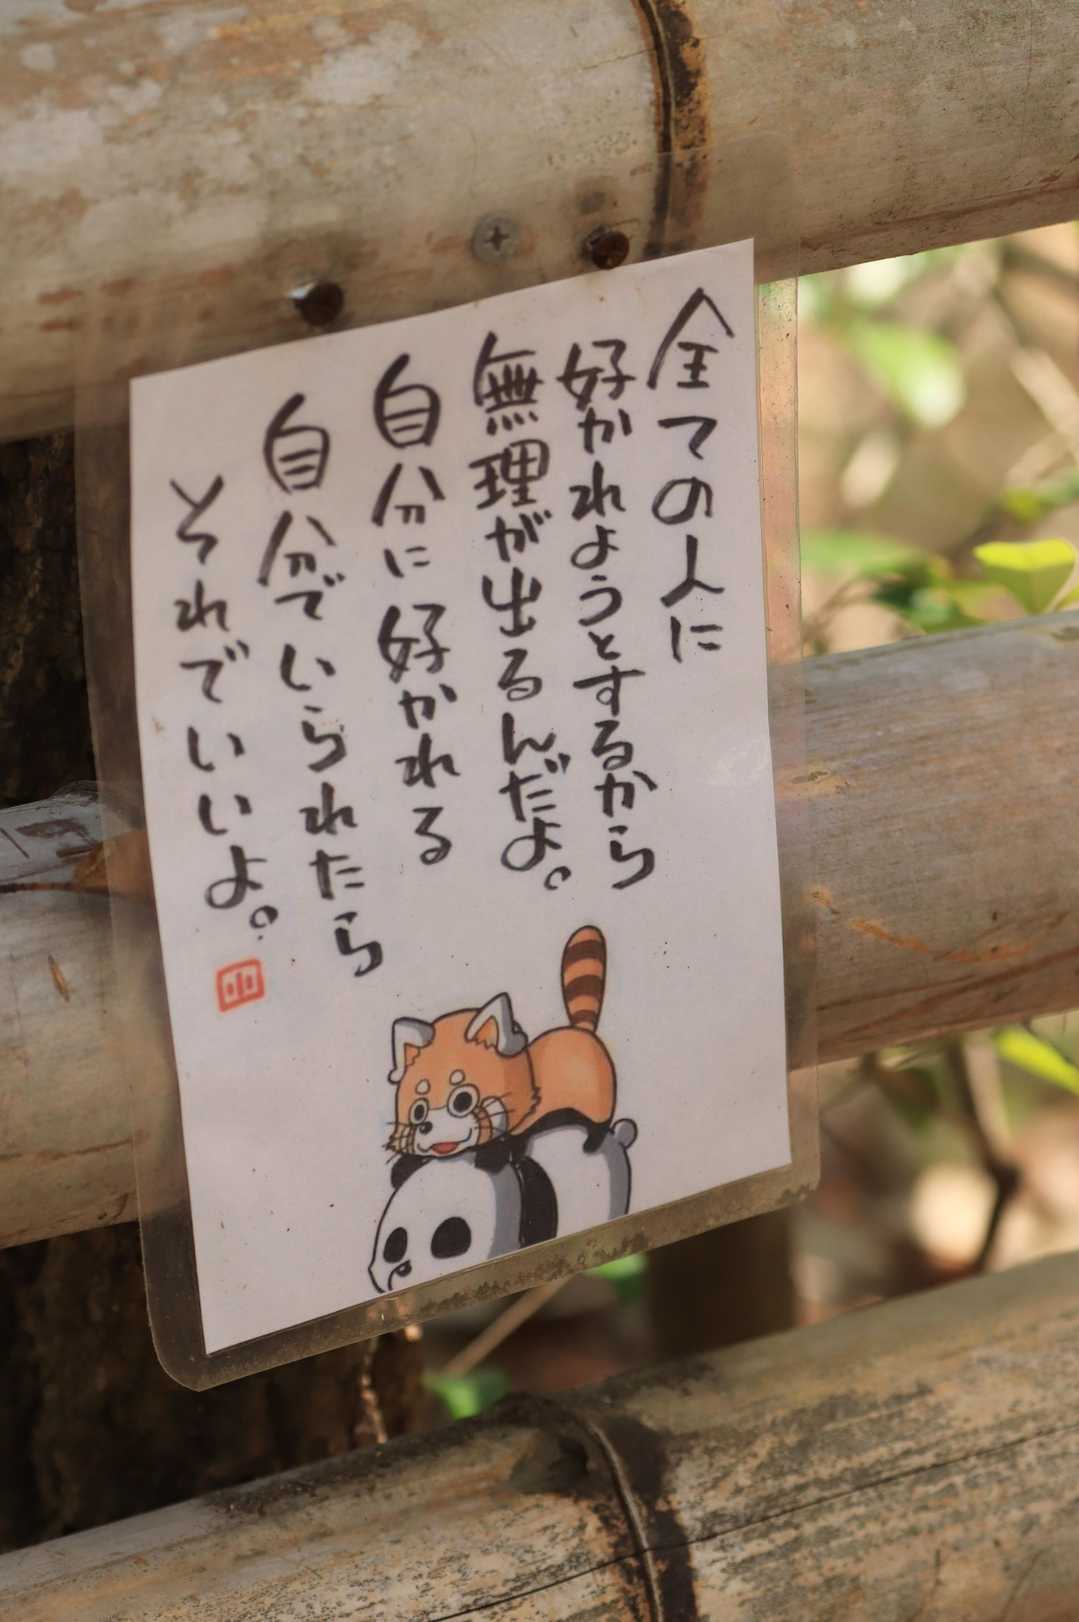 全ての人に
好かれようとするから
無理が出るんだよ。
自分に好かれる
自分でいられたら
それでいいよ。